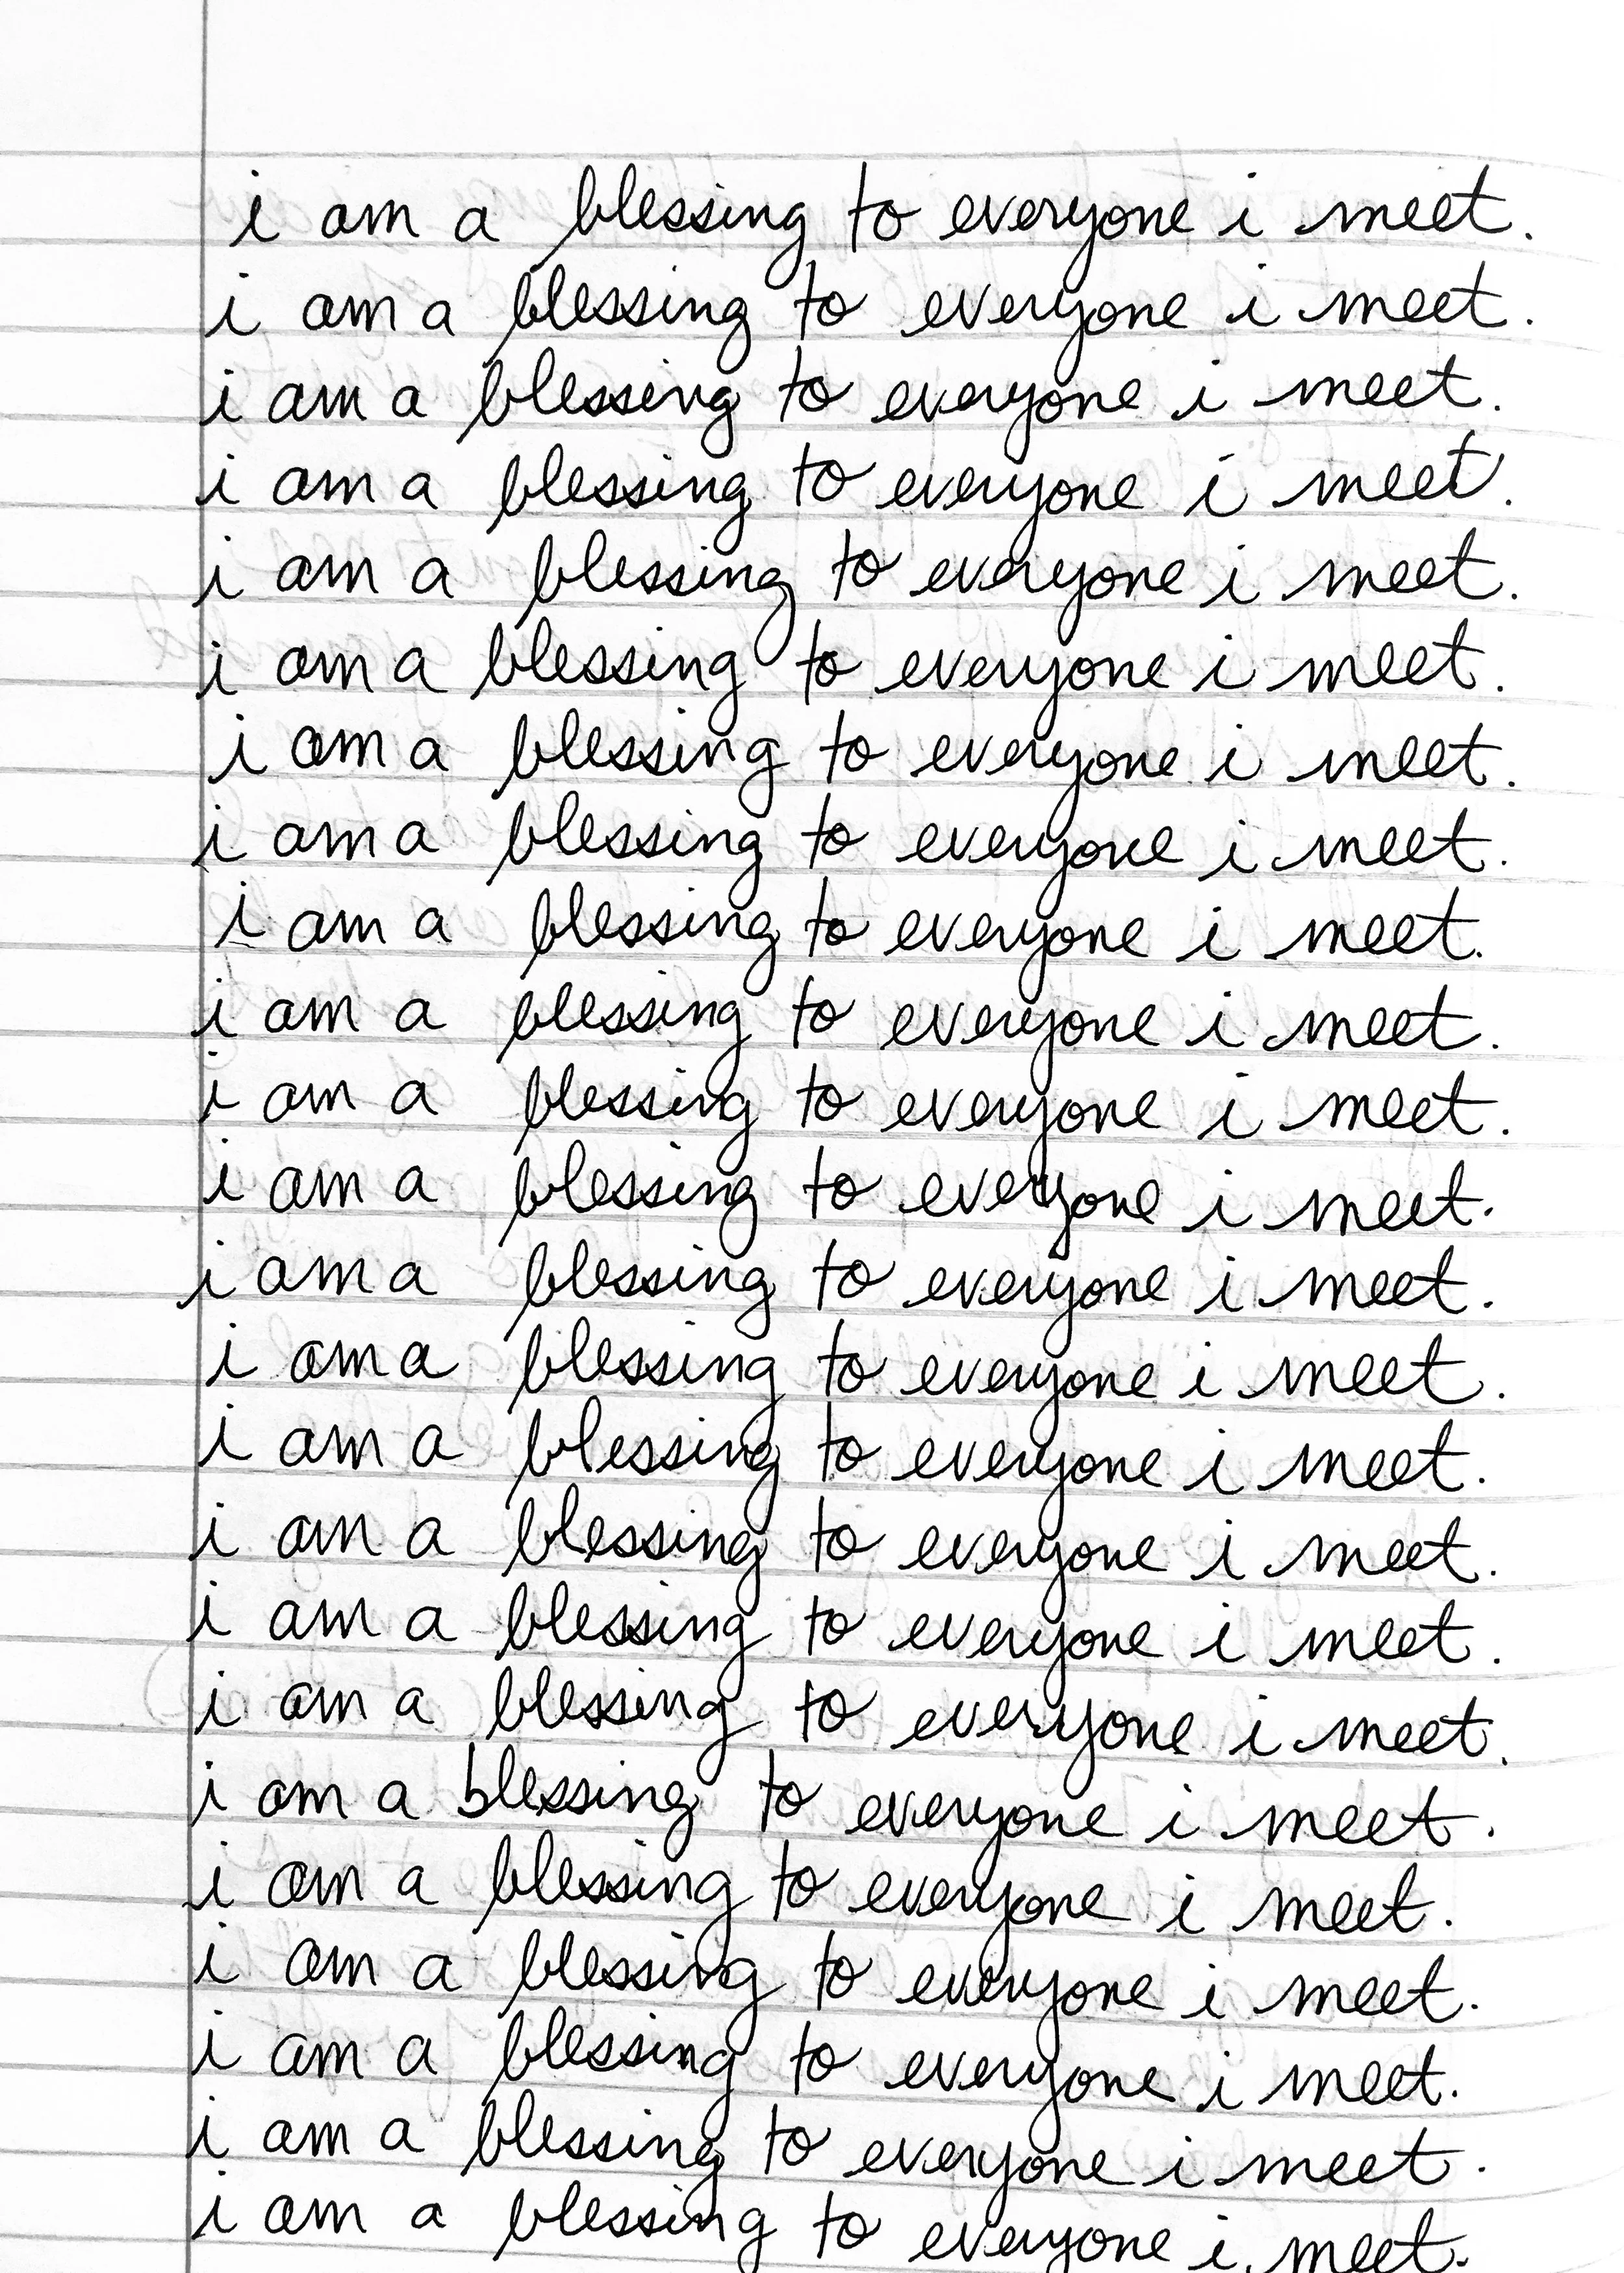 i am a blessing to everyone i meet.
i am a blessing to everyone i meet.
i am a blessing to everyone i meet.
i am a blessing to everyone i meet.
i am a blessing to everyone i meet.
i am a blessing to everyone i meet.
i am a blessing to everyone i meet.
i am a blessing to everyone i meet.
i am a blessing to everyone i meet.
i am a blessing to everyone i meet.
i am a blessing to everyone i meet.
i am a blessing to everyone i meet.
i am a blessing to everyone i meet.
i am a blessing to everyone i meet.
i am a blessing to everyone i meet.
i am a blessing to everyone i meet.
i am a blessing to everyone i meet.
i am a blessing to everyone i meet.
i am a blessing to everyone i meet.
i am a blessing to everyone i meet.
i am a blessing to everyone i meet.
i am a blessing to everyone i meet.
i am a blessing to everyone i meet.
i am a blessing to everyone i meet.